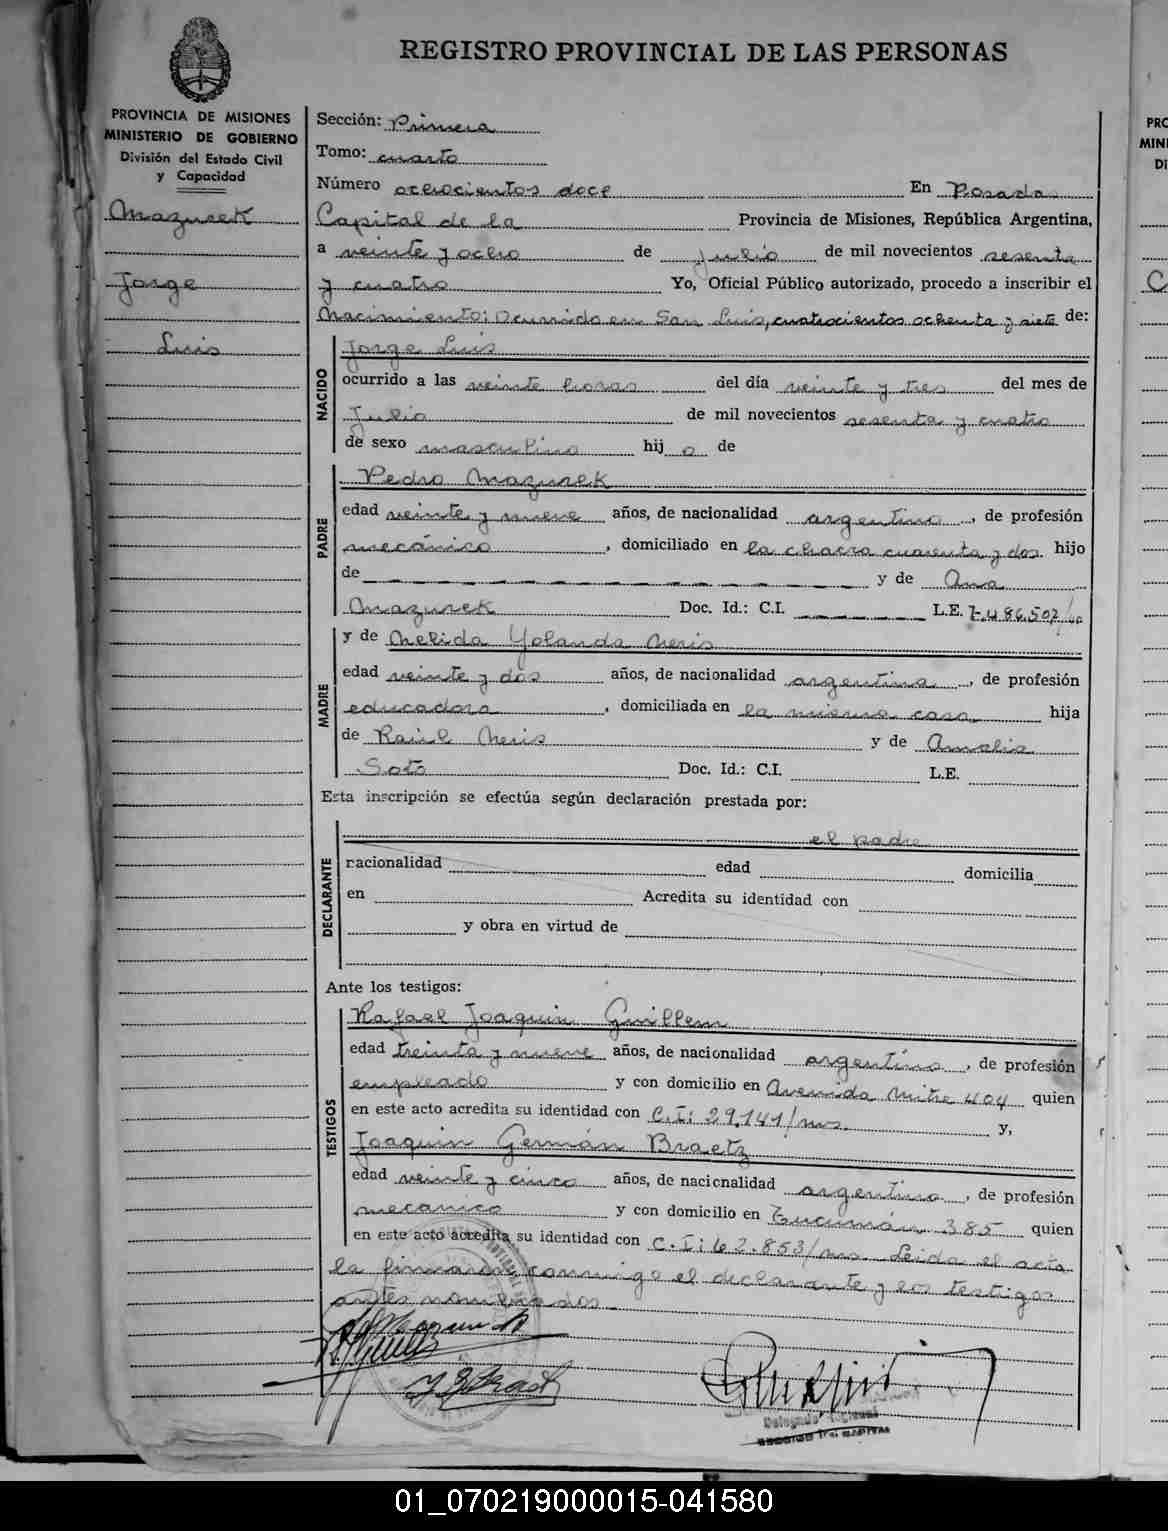 REGISTRO PROVINCIAL DE LAS PERSONAS
PROVINCIA DE MISIONES
MINISTERIO DE GOBIERNO
División del Estado Civil
y Capacidad
Mazurek
Jorge
Luis
Sección: Primera
Tomo: cuarto
Número ochocientos doce En Posadas
Capital de la Provincia de Misiones, República Argentina,
a veinte y ocho de Julio de mil novecientos sesenta
y cuatro Yo, Oficial Público autorizado, procedo a inscribir el
Nacimiento: Ocurrido en San Luis, cuatrocientos ochenta y siete de:
NACIDO
Jorge Luis
ocurrido a las veinte horas del día veinte y tres del mes de
Julio de mil novecientos sesenta y cuatro
de sexo masculino hij o de
PADRE
Pedro Mazurek
edad veinte y nueve años, de nacionalidad argentino, de profesión
mecánico, domiciliado en la chacra cuarenta y dos hijo
de y de Ana
Mazurek Doc. Id.: C.I. L.E. 7.486.507/
MADRE
y de Nelida Yolanda Neris
edad veinte y dos años, de nacionalidad argentina, de profesión
educadora, domiciliada en la misma casa hija
de Raúl Neris y de Amalia
Soto Doc. Id.: C.I. L.E.
Esta inscripción se efectúa según declaración prestada por:
DECLARANTE
el padre
nacionalidad edad domicilia
en Acredita su identidad con
y obra en virtud de
Ante los testigos:
TESTIGOS
Rafael Joaquin Guillem
edad treinta y nueve años, de nacionalidad argentino, de profesión
empleado y con domicilio en Avenida Mitre 404 quien
en este acto acredita su identidad con C.I: 29.141/ms. y,
Joaquin Germán Braetz
edad veinte y cinco años, de nacionalidad argentino, de profesión
mecanico y con domicilio en Tucumán 385 quien
en este acto acredita su identidad con C.I: 62.853/ms. Leida el acta
la firmaron conmigo el declarante y los testigos
antes nombrados
Delegado Regional
01_070219000015-041580